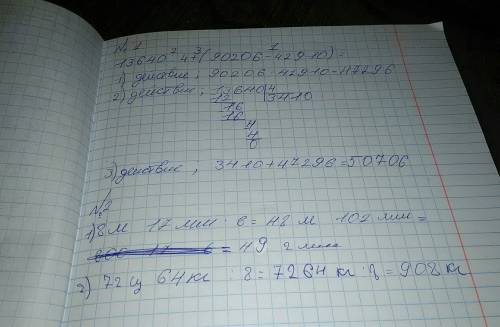 № 1
13640 : 4 + (90206 - 42910) =
1) действие; 90206 - 42910 = 47296
2) действие; 13640 | 4
12 3410
16
16
4
4
0
3) действие; 3410 + 47296 = 50706
№2
1) 8 м 17 мм · 6 = 48 м 102 мм =
= 49 2 мм
2) 72 ц 64 кг : 8 = 7264 кг : 8 = 908 кг